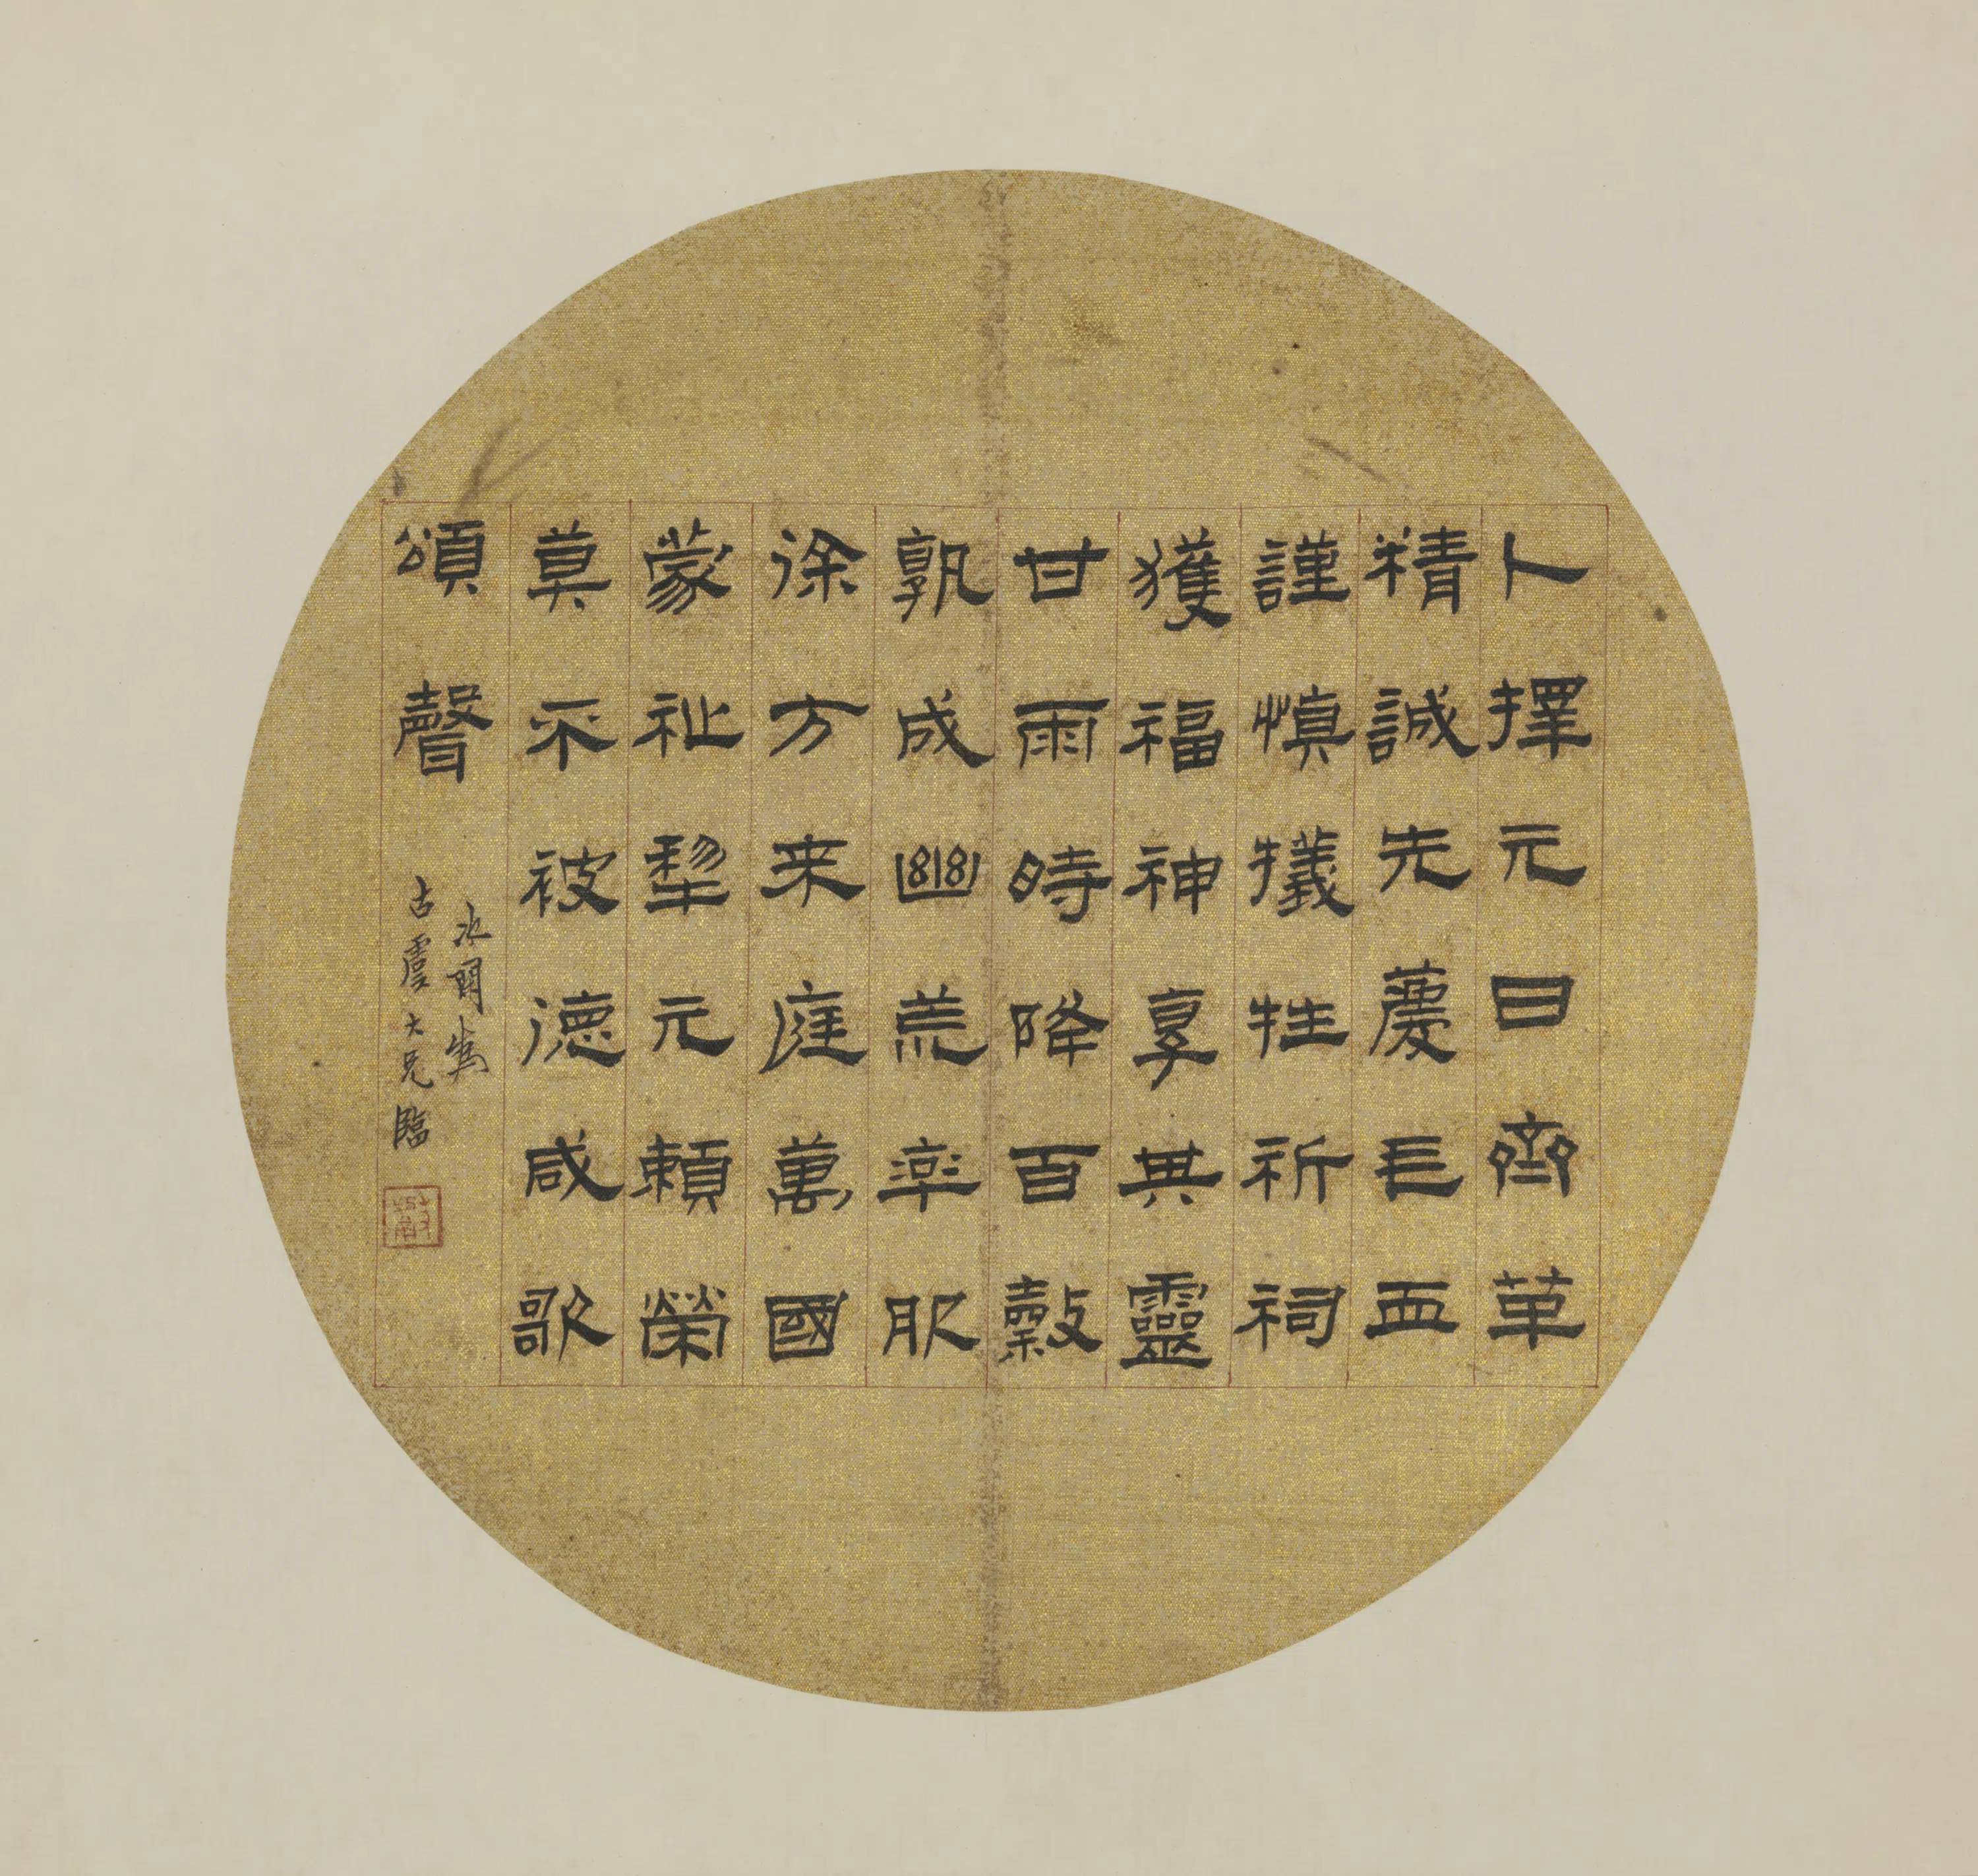 卜擇元日齊革
精誠先薦毛血
謹慎犧牲祈祠
獲福神享其靈
甘雨時降百穀
孰成幽荒率服
徐方来庭萬國
蒙祉犂元賴榮
莫不被德咸歌
頌聲
古虞大兄臨